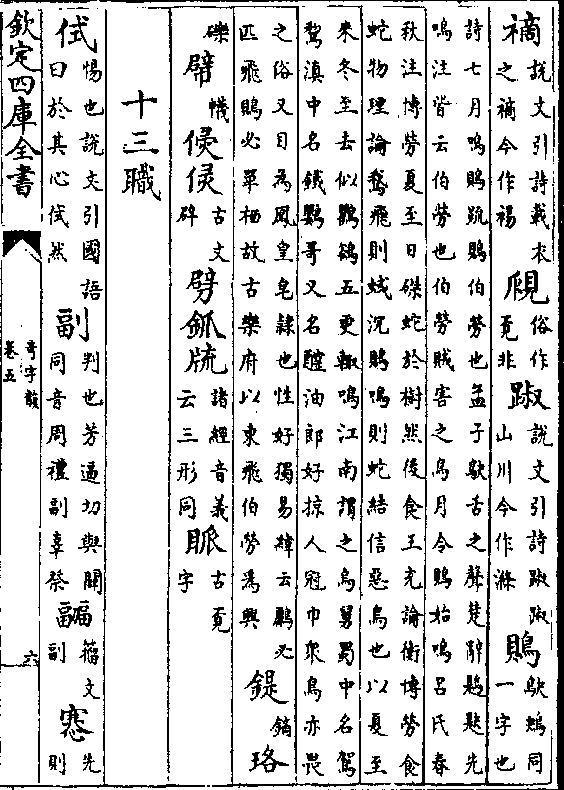 褅說文引詩載衣之褅今作裼覛俗作覔非踧說文引詩踧踧山川今作滌鵙鴃鴂同一字也
詩七月鳴鵙疏鵙伯勞也孟子鴃舌之聲楚辭鶗鴃先
鳴注皆云伯勞也伯勞賊害之鳥月令鵙始鳴呂氏春
秋注博勞夏至日磔蛇於樹然後食王充論衡博勞食
蛇物理論鵞飛則蜮沉鵙鳴則蛇結信惡鳥也以夏至
來冬至去似鸜鵒五更輙鳴江南謂之烏舅蜀中名駕
鴷滇中名鐵鸚哥又名醯油郎好掠人冠巾衆鳥亦畏
之俗又目為鳳皇皂隸也性好獨易緯云鸝必
匹飛鵙必單栖故古樂府以東飛伯勞為興鍉鏑珞
礫幦幭古文辟劈釽諸經音義云三形同脈古覓字
十三職
侙惕也說文引國語曰於其心侙然副判也芳逼切與同音周禮副辜祭疈籀文副窸先則
欽定四庫全書
奇字韻
卷五
六